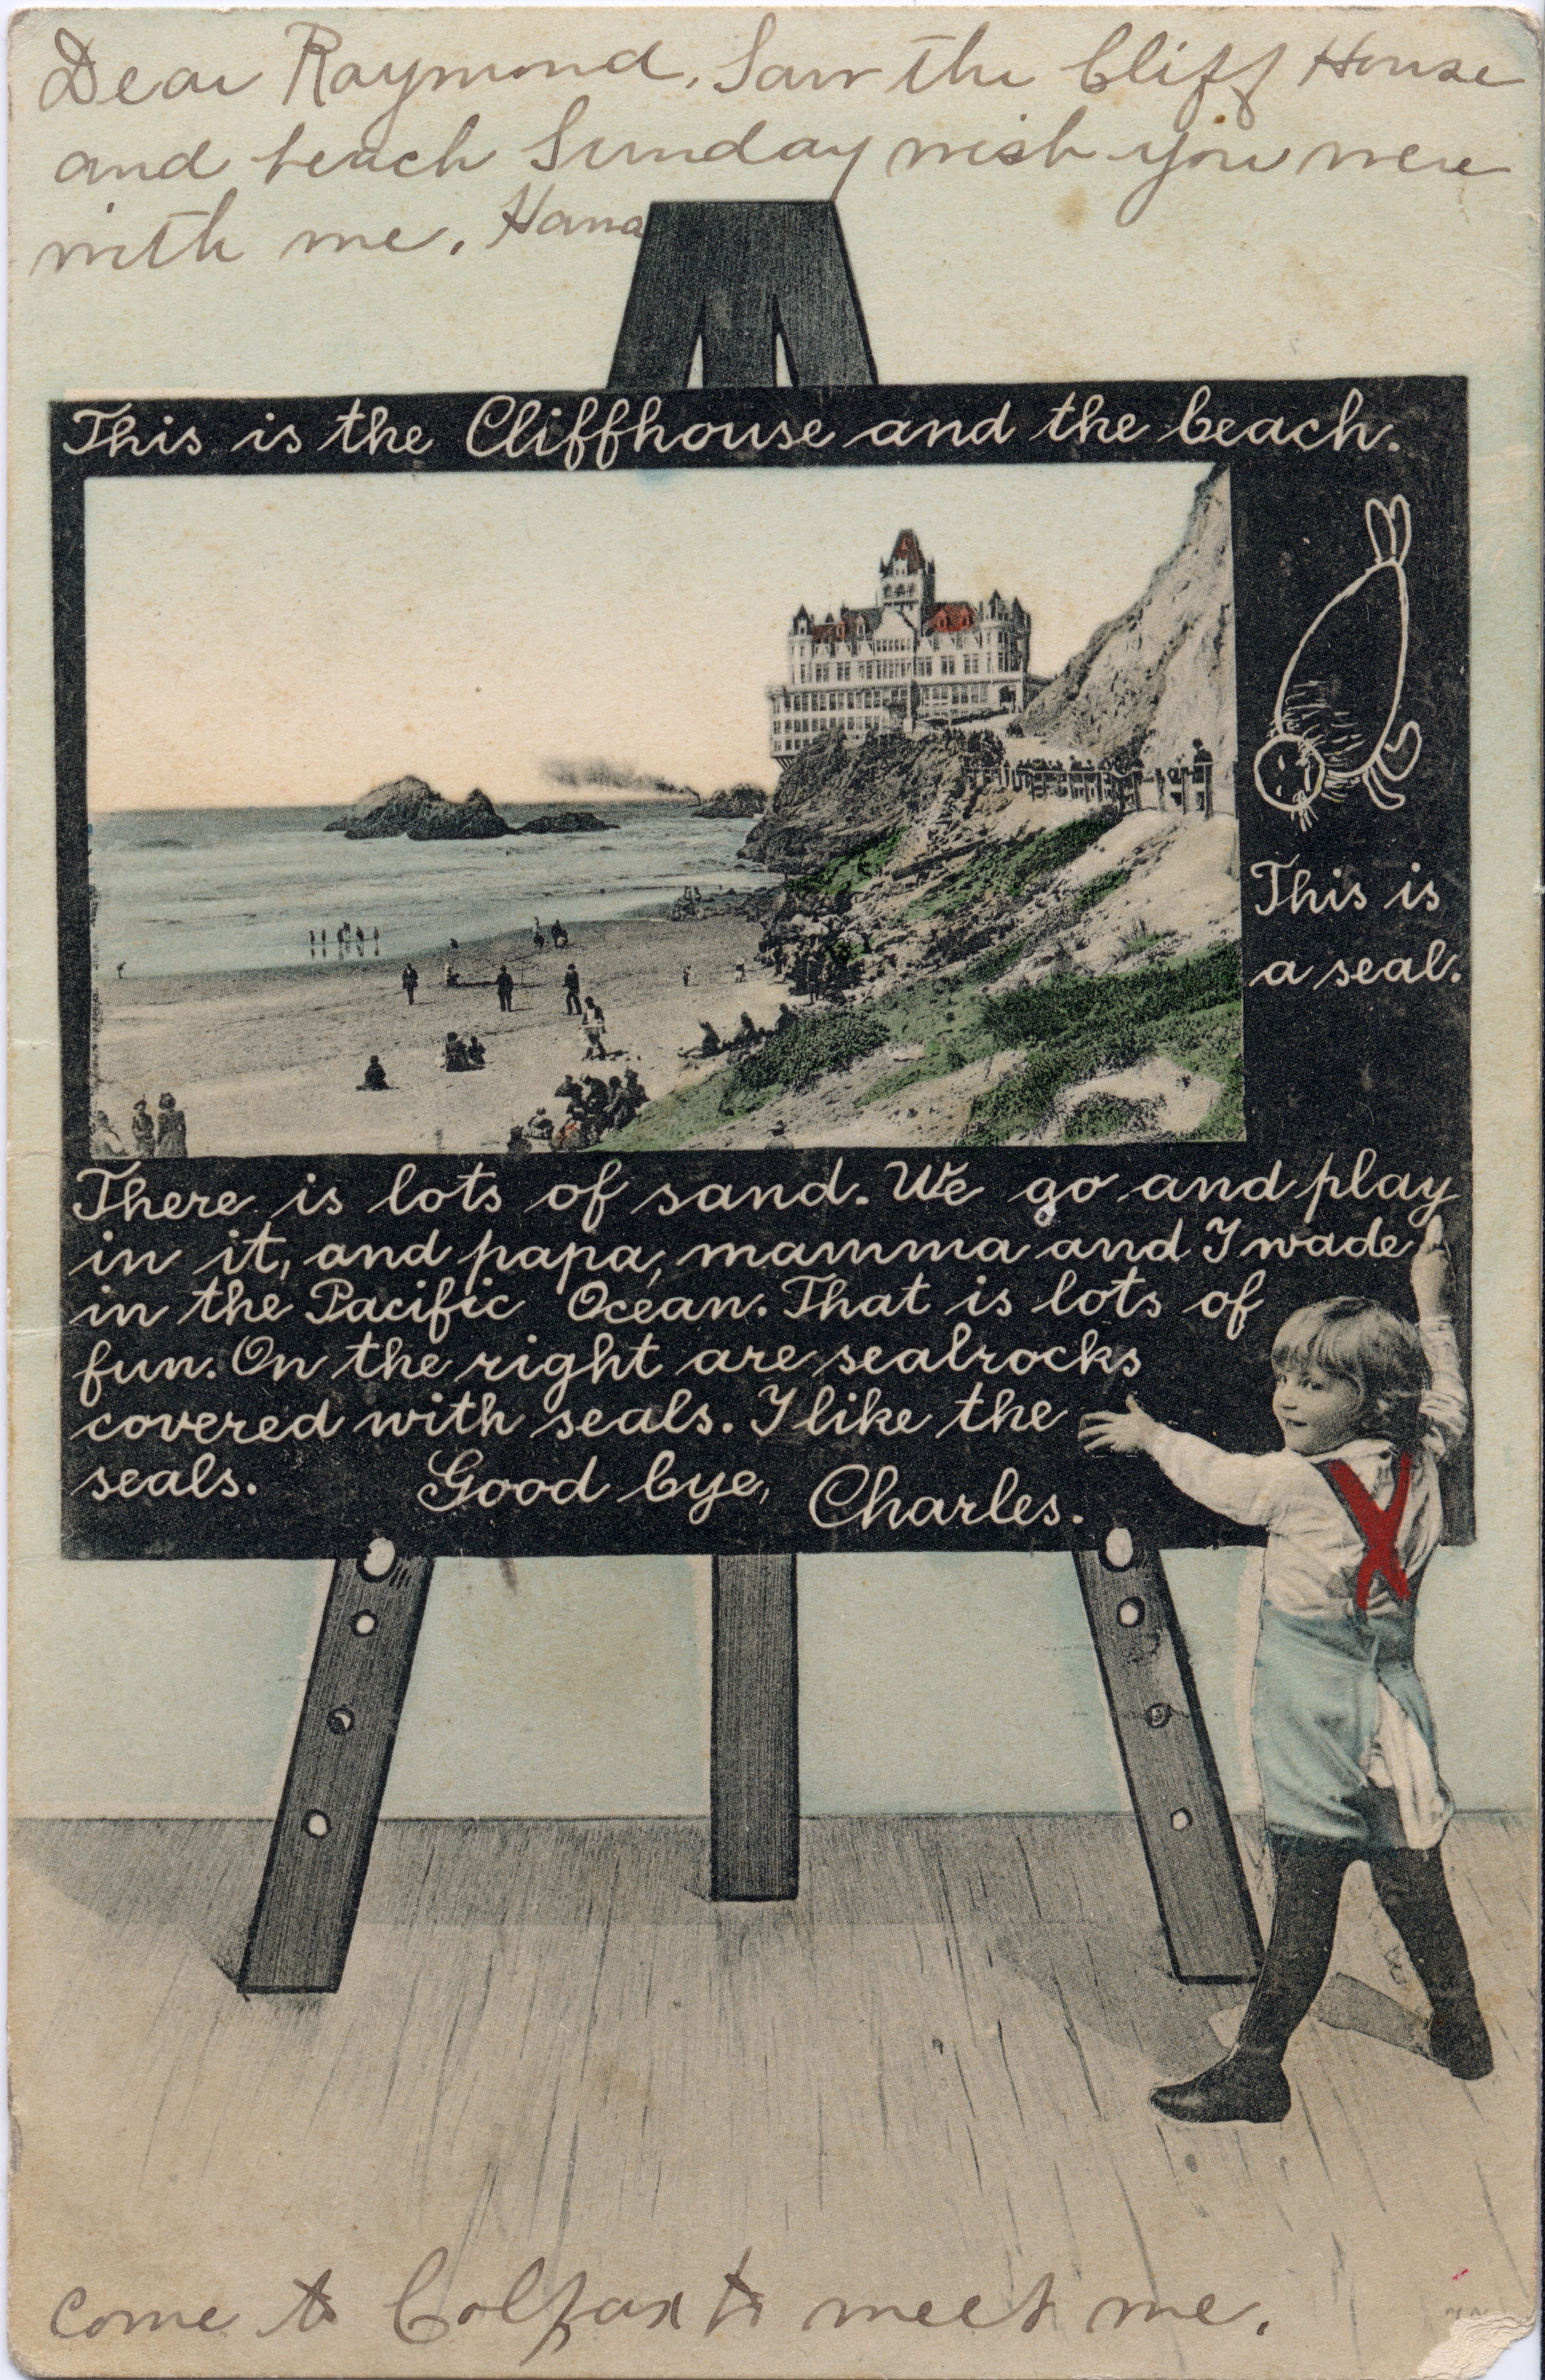 Dear Raymond, Saw the Cliff House
and beach Sunday wish you were
with me. Hana
This is the Cliffhouse and the beach.
This is
a seal.
There is lots of sand. We go and play
in it, and papa, mamma and I wade
in the Pacific Ocean. That is lots of
fun. On the right are sealrocks
covered with seals. I like the
seals. Good bye, Charles.
come to Colfax to meet me.